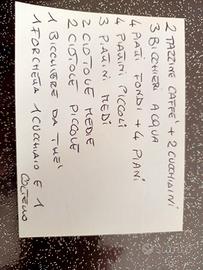 2 TAZZINE CAFFE' + 2 CUCCHIAINI
3 BICCHIERI ACQUA
4 PIATTI FONDI + 4 PIANI
4 PIATTINI PICCOLI
3 PIATTINI MEDI
2 CIOTOLE MEDIE
2 CIOTOLE PICCOLE
1 BICCHIERE DA THE'
1 FORCHETTA 1 CUCCHIAIO E 1
COLTELLO